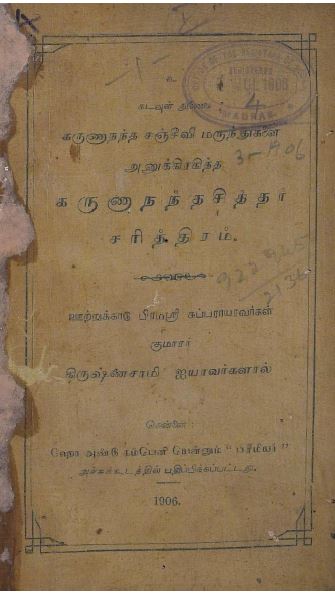 உ
கடவுள் துணை
கருணாநந்த சஞ்சீவி மருந்துகளை
அனுக்கிரகித்த
கருணாநந்தசித்தர்
சரித்திரம்.
ஊற்றுக்காடு பிரமஸ்ரீ சுப்பராயரவர்கள்
குமாரர்
கிருஷ்ணசாமி ஐயரவர்களால்
சென்னை :
ஹோ அண்டு கம்பெனி யென்னும் "பிரீமியர்"
அச்சுக்கூடத்தில் பதிப்பிக்கப்பட்டது.
1906.
REGISTERED
1906
4
MADRAS
3-1-06